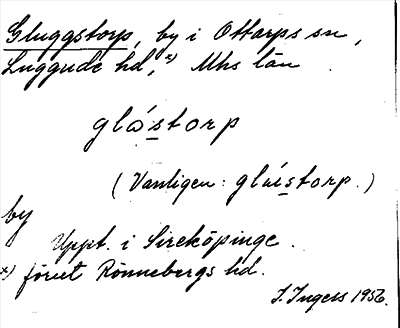 Gluggstorp, by i Ottarps sn,
Luggude hd, x) Mhs län
glåstorp
(Vanligen: glaistorp.)
by
Uppt. i Sireköpinge.
x) förut Rönnebergs hd.
I. Ingers 1956.